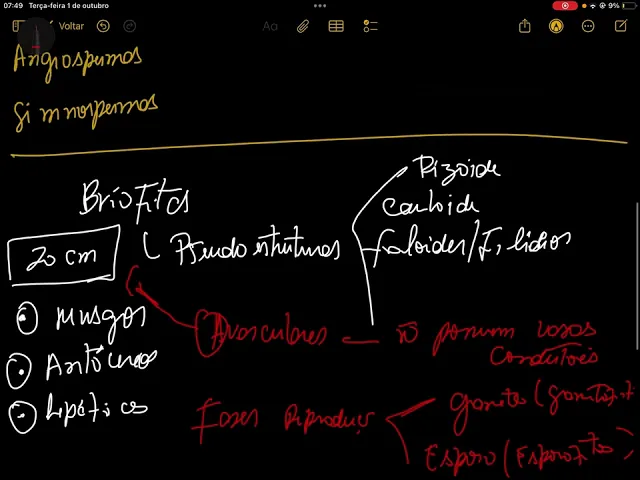 07:49 Terça-feira 1 de outubro
9%
Voltar
Aa
Angiospermas
Gimnospermas
Briofitas
20 cm
Pseudo estruturas
Rizoide
Cauloide
Faloides/Filidios
Musgos
Antóceros
Hepáticas
Avasculares — ñ possuem vasos
condutores
Fases Reproduç
gameta (gametófit
Esporo (Esporofito)